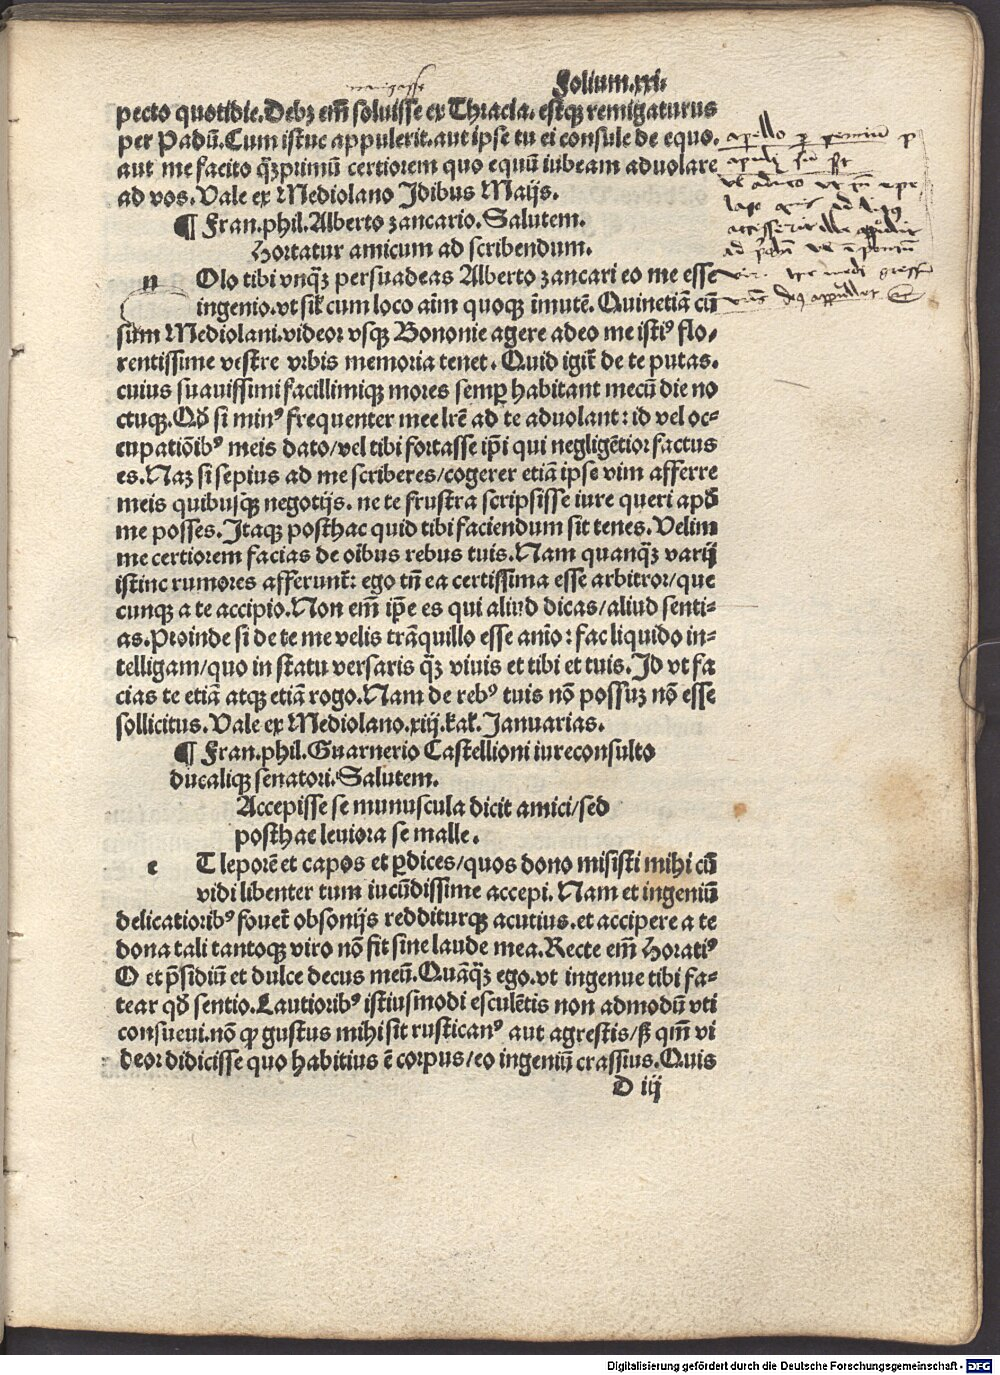 Folium.xxi.
nauigasse
pecto quotidie. Debꝫ em̄ soluisse ex Thracia. estqꝫ remigaturus
per Padū. Cum istuc appulerit. aut ipse tu ei consule de equo.
aut me facito qꝫprimū certiorem quo equū iubeam aduolare
ad vos. Vale ex Mediolano Idibus Maijs.
¶ Fran. phil. Alberto zancario. Salutem.
Hortatur amicum ad scribendum.
n Olo tibi vnqꝫ persuadeas Alberto zancari eo me esse
ingenio. vt sil̄ cum loco aim̄ quoqꝫ īmutē. Quinetiā cū
sum Mediolani. videor vsqꝫ Bononie agere adeo me istiꝰ flo-
rentissime vestre vrbis memoria tenet. Quid igit̄ de te putas.
cuius suauissimi facillimiqꝫ mores semꝑ habitant mecū die no
ctuqꝫ. Qđ si minꝰ frequenter mee lr̄e ad te aduolant: id vel oc-
cupatiōibꝰ meis dato/vel tibi fortasse ip̄i qui negligētior factus
es. Naꝫ si sepius ad me scriberes/cogerer etiā ipse vim afferre
meis quibusqꝫ negotijs. ne te frustra scripsisse iure queri apđ
me posses. Itaqꝫ posthac quid tibi faciendum sit tenes. Velim
me certiorem facias de oībus rebus tuis. Nam quanqꝫ varij
istinc rumores afferunt̄: ego tn̄ ea certissima esse arbitror/que
cunqꝫ a te accipio. Non em̄ ip̄e es qui aliud dicas/aliud senti-
as. Proinde si de te me velis trāquillo esse anīo: fac liquido in-
telligam/quo in statu versaris qꝫ viuis et tibi et tuis. Id vt fa
cias te etiā atqꝫ etiā rogo. Nam de rebꝰ tuis nō possuꝫ nō esse
sollicitus. Vale ex Mediolano. xiij. kal̄. Januarias.
¶ Fran. phil. Guarnerio Castellioni iureconsulto
ducaliqꝫ senatori. Salutem.
Accepisse se munuscula dicit amici/sed
posthac leuiora se malle.
e T leporē et capos et ꝑdices/quos dono misisti mihi cū
vidi libenter tum iucūdissime accepi. Nam et ingeniū
delicatioribꝰ fouet̄ obsonijs redditurqꝫ acutius. et accipere a te
dona tali tantoqꝫ viro nō fit sine laude mea. Recte em̄ Horatiꝰ
O et p̄sidiū et dulce decus meū. Quāqꝫ ego. vt ingenue tibi fa-
tear qđ sentio. Lautioribꝰ istiusmodi esculētis non admodū vti
consueui. nō ꝙ gustus mihi sit rusticanꝰ aut agrestis/ß qm̄ vi
deor didicisse quo habitius ē corpus/eo ingeniū crassius. Quis
D iij
Digitalisierung gefördert durch die Deutsche Forschungsgemeinschaft - DFG